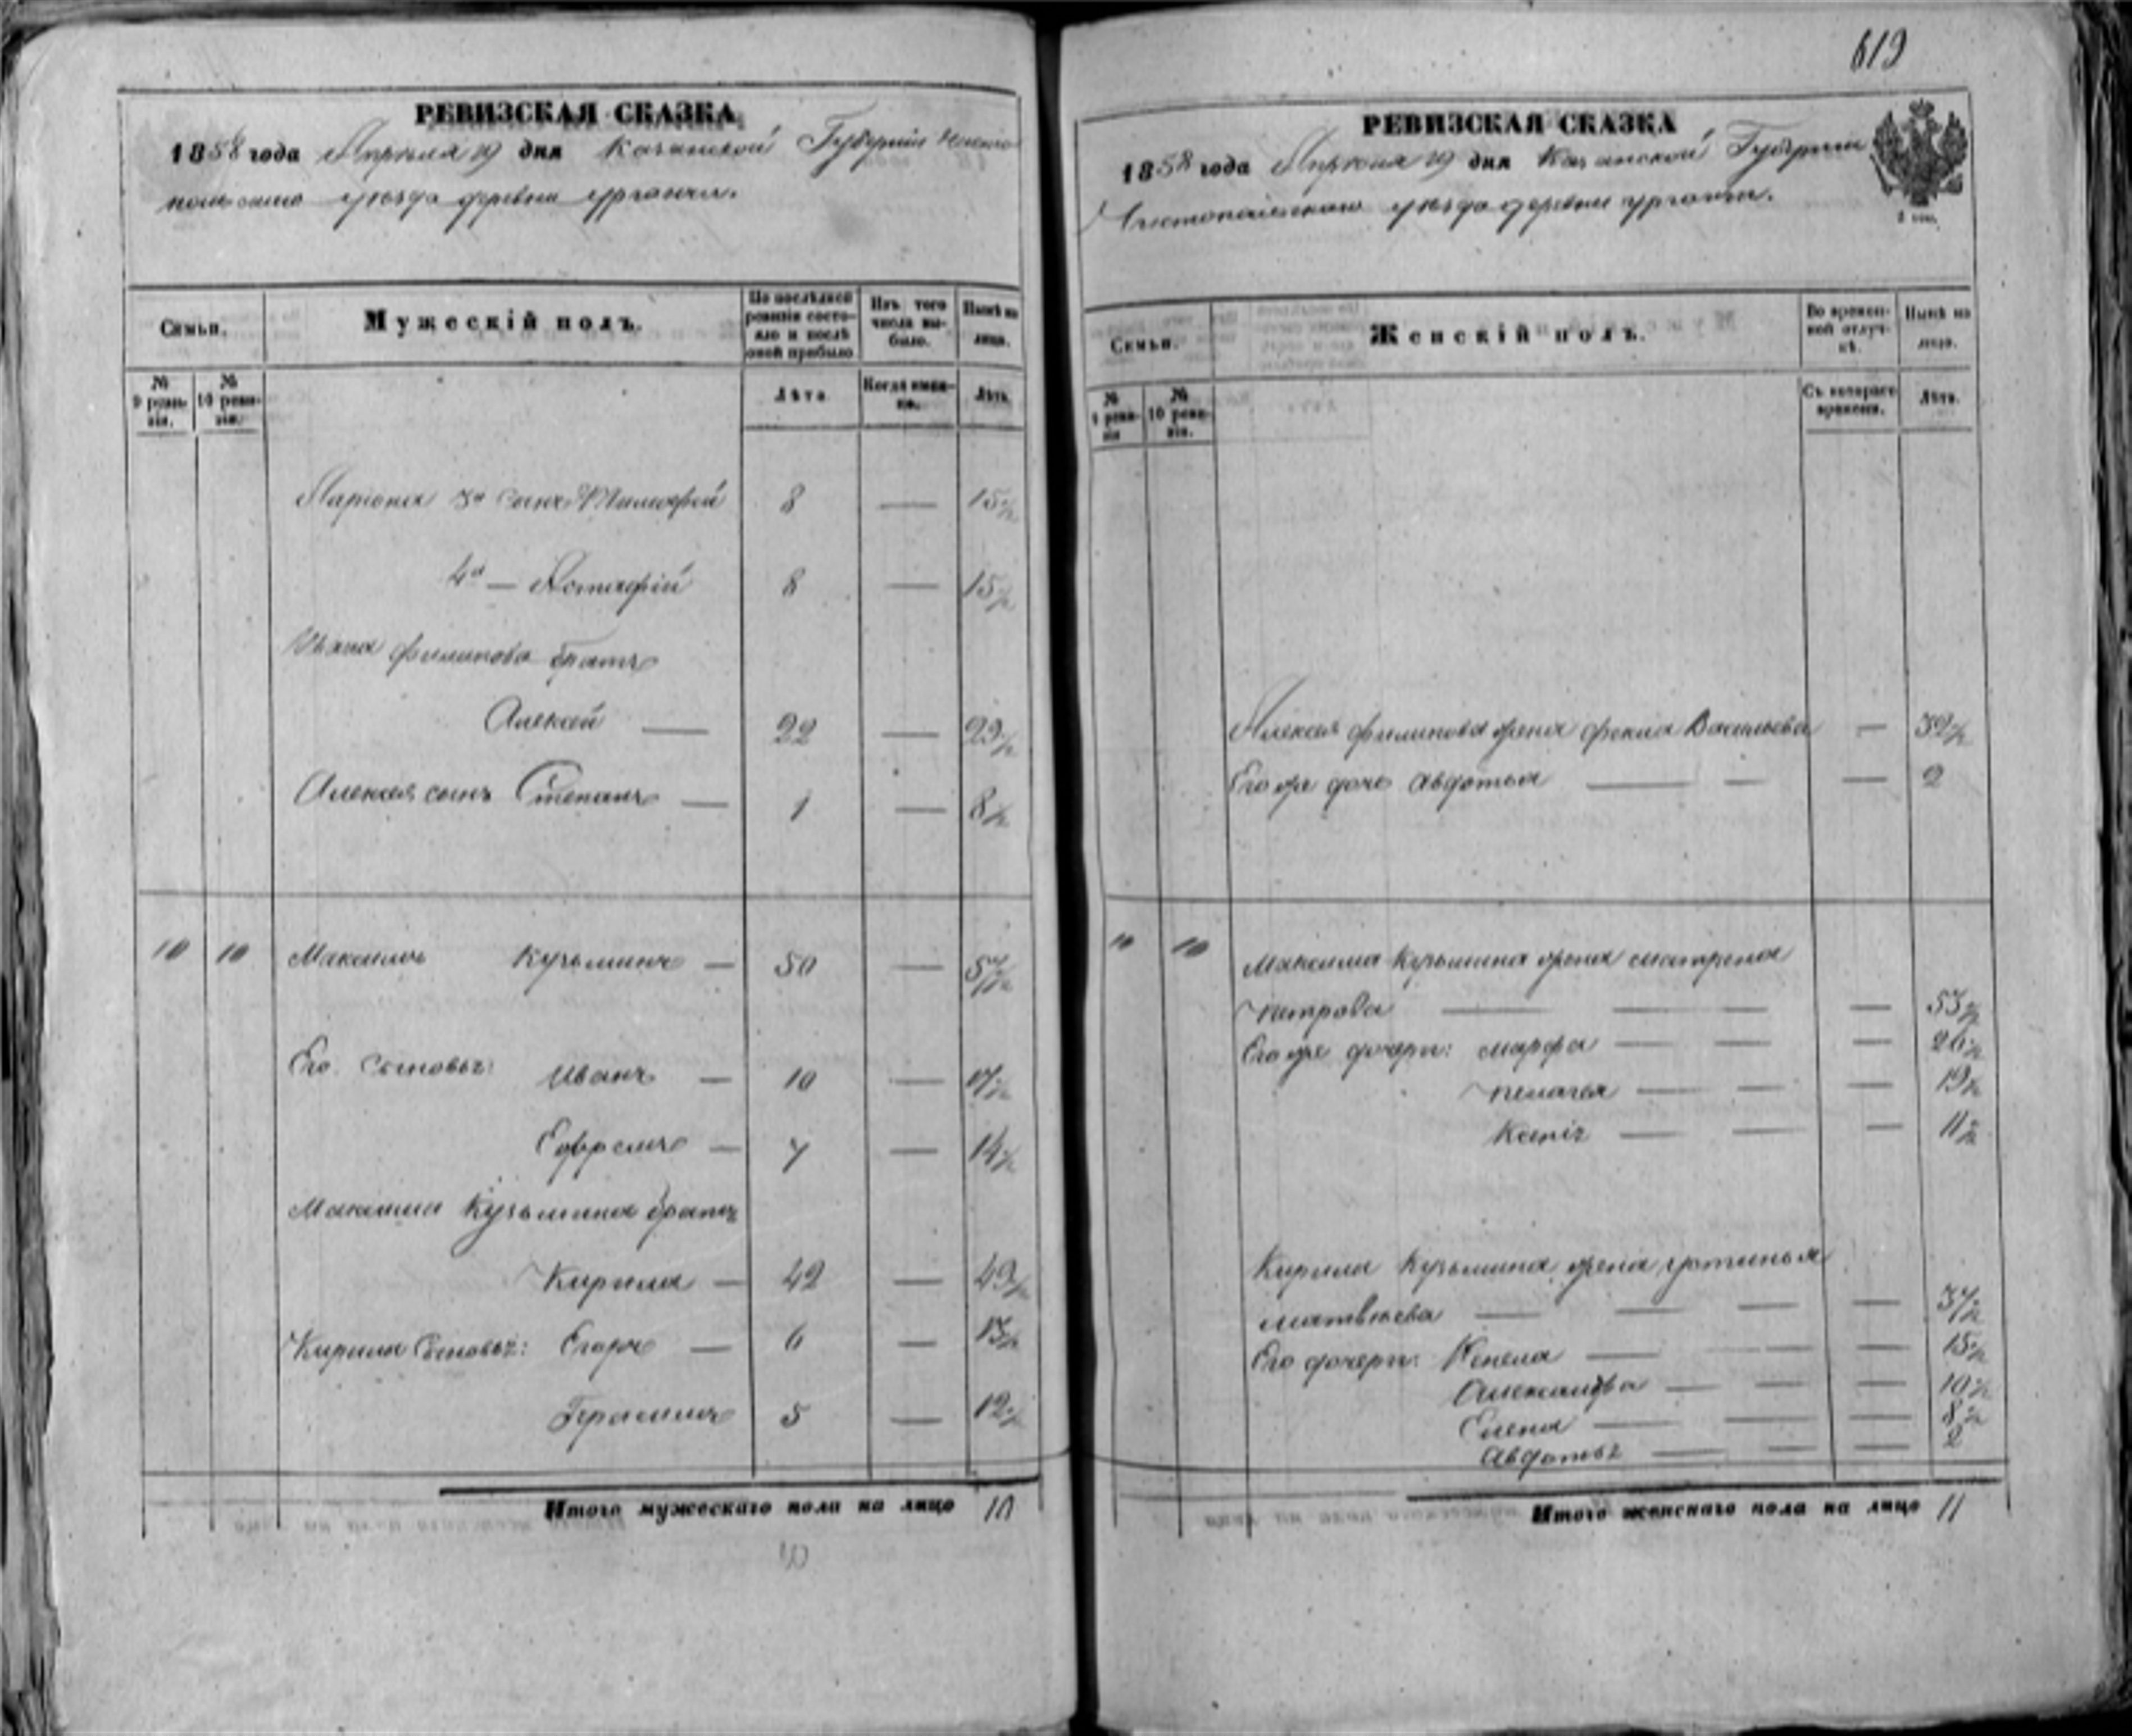 РЕВИЗСКАЯ СКАЗКА
1858 года Апрѣля 19 дня Казанской Губерніи Чисто
польскаго уѣзда деревни
Семьи.
Мужескій полъ.
По послѣдней ревизіи состояло и послѣ оной прибыло
Изъ того числа выбыло.
Нынѣ на лицо.
№ 9 ревизіи.
№ 10 ревизіи.
Лѣта
Когда именно.
Лѣта.
Ларіона 3й сынъ Тимофей 8 — 15½
4й — Астафій 8 — 15½
Ивана Филипова братъ
Алексей — 22 — 29½
Алексея сынъ Степанъ — 1 — 8½
10 10 Максимъ Кузьминъ — 50 — 57½
Его Сыновья: Иванъ — 10 — 17½
Ефремъ — 7 — 14½
Максима Кузьмина братъ
Кирила — 42 — 49½
Кирила Сыновья: Егоръ — 6 — 13½
Герасимъ 5 — 12½
Итого мужескаго пола на лицо 10
10
619
РЕВИЗСКАЯ СКАЗКА
1858 года Апрѣля 19 дня Казанской Губерніи
Чистопольскаго уѣзда деревни
Семьи.
Женскій полъ.
Во временной отлучкѣ.
Нынѣ на лицо.
№ 9 ревизіи
№ 10 ревизіи.
Съ котораго времени.
Лѣта.
Алексея Филипова жена Фекла Васильева — 32½
Его же дочь Авдотья — — — 2
10 10 Максима Кузьмина жена Матрена
Петрова — — — — 53½
Его же дочери: Марфа — — — 26½
Пелагея — — — 19½
Ксенія — — — 11½
Кирила Кузьмина жена Устинья
Матвѣева — — — — 37½
Его дочери: — — — 15½
Александра — — — 10½
Елена — — — 8½
Авдотья — — — 2
Итого женскаго пола на лицо 11